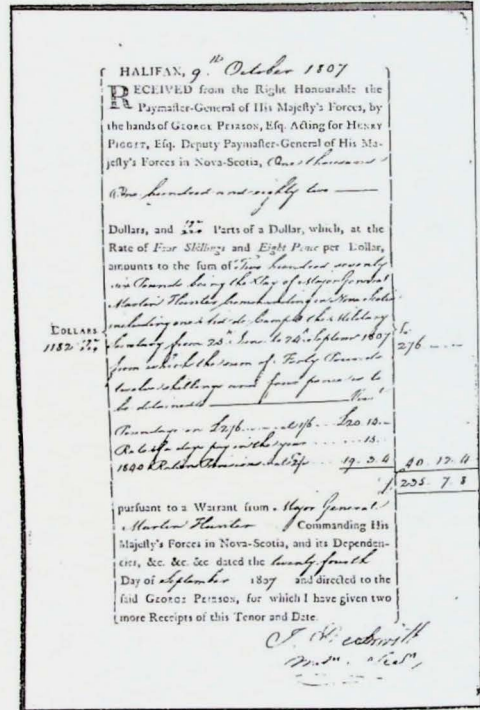 HALIFAX, 9th October 1807
RECEIVED from the Right Honourable the
Paymaster-General of His Majesty's Forces, by
the hands of GEORGE PEIRSON, Esq. Acting for HENRY
PIGGET, Esq. Deputy Paymaster-General of His Ma-
jesty's Forces in Nova-Scotia, One thousand
One hundred and eighty two
Dollars, and Parts of a Dollar, which, at the
Rate of Four Shillings and Eight Pence per Dollar,
amounts to the sum of Two hundred seventy
six Pounds being the Pay of Major General
Martin Hunter commanding in Nova Scotia
including one Aid de Camp & the Military
DOLLARS
1182
Secretary from 25th June to 24th Septemr 1807
£
276
from which the sum of Forty Pounds
twelve shillings and four pence is to
be deducted Viz
Poundage on £276 at 1/6 £20.14
Rate of a days pay in the year 15
1840 Rations at 19.3.4 40 12 4
£ 235 7 8
pursuant to a Warrant from Major General
Martin Hunter Commanding His
Majesty's Forces in Nova-Scotia, and its Dependen-
cies, &c. &c. &c dated the twenty fourth
Day of September 1807 and directed to the
said GEORGE PEIRSON, for which I have given two
more Receipts of this Tenor and Date.